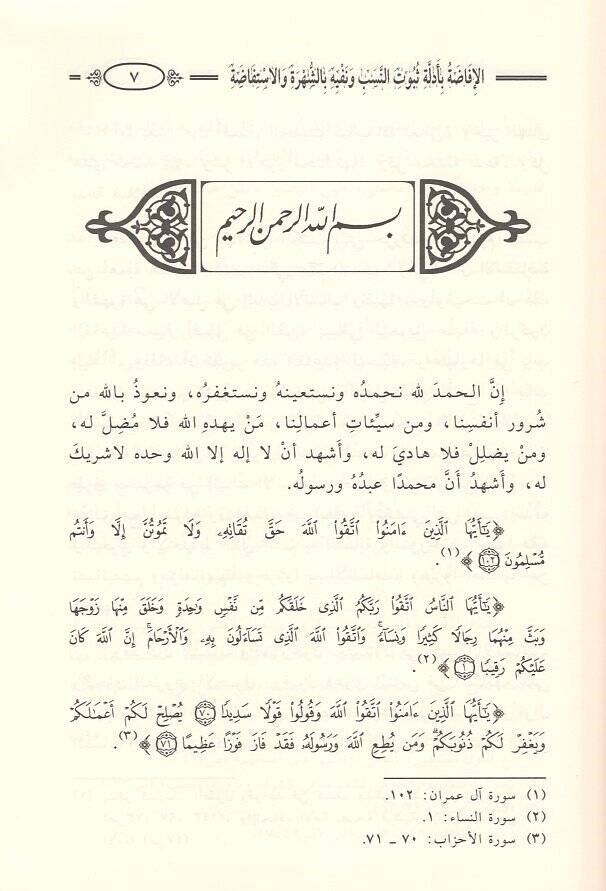 الإفاضة بأدلة ثبوت النسب ونفيه بالشهرة والاستفاضة ٧
بسم الله الرحمن الرحيم
إنَّ الحمدَ لله نحمدُه ونستعينهُ ونستغفرُه، ونعوذُ بالله من
شُرور أنفسِنا، ومن سيِّئاتِ أعمالِنا، مَنْ يهدهِ الله فلا مُضِلَّ له،
ومنْ يضلِلْ فلا هاديَ له، وأشهد أنْ لا إله إلا الله وحده لاشريكَ
له، وأشهدُ أنَّ محمدًا عبدُهُ ورسولُه.
﴿يَٰٓأَيُّهَا ٱلَّذِينَ ءَامَنُوا۟ ٱتَّقُوا۟ ٱللَّهَ حَقَّ تُقَاتِهِۦ وَلَا تَمُوتُنَّ إِلَّا وَأَنتُم
مُّسْلِمُونَ ١٠٢﴾(١).
﴿يَٰٓأَيُّهَا ٱلنَّاسُ ٱتَّقُوا۟ رَبَّكُمُ ٱلَّذِى خَلَقَكُم مِّن نَّفْسٍ وَٰحِدَةٍ وَخَلَقَ مِنْهَا زَوْجَهَا
وَبَثَّ مِنْهُمَا رِجَالًا كَثِيرًا وَنِسَآءً ۚ وَٱتَّقُوا۟ ٱللَّهَ ٱلَّذِى تَسَآءَلُونَ بِهِۦ وَٱلْأَرْحَامَ ۚ إِنَّ ٱللَّهَ كَانَ
عَلَيْكُمْ رَقِيبًا ١﴾(٢).
﴿يَٰٓأَيُّهَا ٱلَّذِينَ ءَامَنُوا۟ ٱتَّقُوا۟ ٱللَّهَ وَقُولُوا۟ قَوْلًا سَدِيدًا ٧٠ يُصْلِحْ لَكُمْ أَعْمَٰلَكُمْ
وَيَغْفِرْ لَكُمْ ذُنُوبَكُمْ ۗ وَمَن يُطِعِ ٱللَّهَ وَرَسُولَهُۥ فَقَدْ فَازَ فَوْزًا عَظِيمًا ٧١﴾(٣).
(١) سورة آل عمران: ١٠٢.
(٢) سورة النساء: ١.
(٣) سورة الأحزاب: ٧٠ - ٧١.